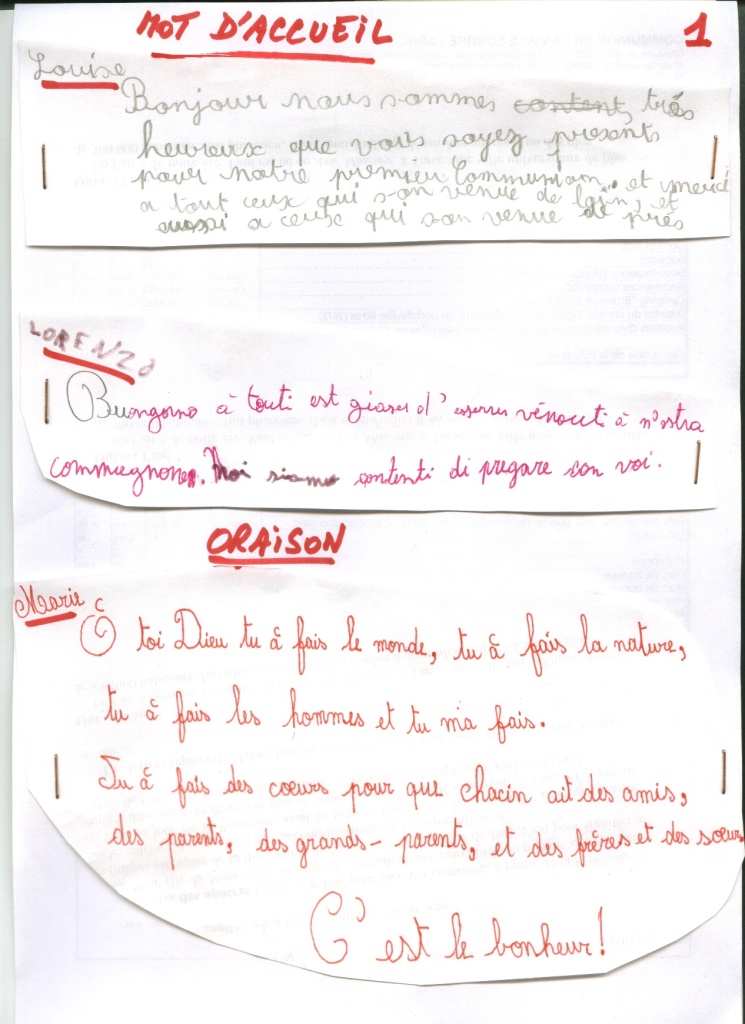 MOT D'ACCUEIL
1
Louise
Bonjour nous sommes content, très
heureux que vous soyez presents
pour notre premier Communion. et merci
a tout ceux qui son venue de loin, et
aussi a ceux qui son venue de près
LORENZO
Buongiorno à touti est giases d' esserus vénoucti à n'ostra
commugnone. Noi siamo contenti di pregare con voi.
ORAiSON
Marie
Ô toi Dieu tu à fais le monde, tu à fais la nature,
tu à fais les hommes et tu ma fais.
Tu à fais des coeurs pour que chacin ait des amis,
des parents, des grands-parents, et des frères et des soeurs
C'est le bonheur!